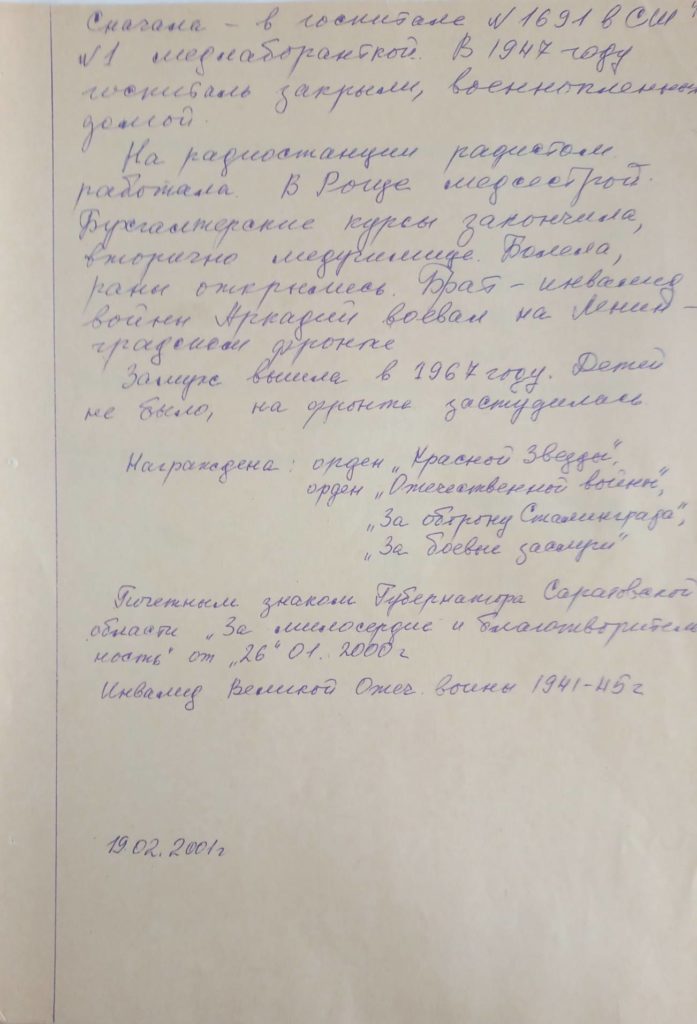 Сначала - в госпитале N 1691 в СШ
N1 медлаборанткой. В 1947 году
госпиталь закрыли, военнопленных
домой.
На радиостанции радистом
работала. В Роще медсестрой.
Бухгалтерские курсы закончила,
вторично медучилище. Болела,
раны открылись. Брат - инвалид
войны Аркадий воевал на Ленин-
градском фронте
Замуж вышла в 1967 году. Детей
не было, на фронте застудилась
Награждена: орден „Красной Звезды",
орден „Отечественной войны",
„За оборону Сталинграда",
„За боевые заслуги"
Почетным знаком Губернатора Саратовской
области „За милосердие и благотворитель
ность" от „26" 01. 2000 г
Инвалид Великой Отеч. войны 1941-45 г
19.02.2001г